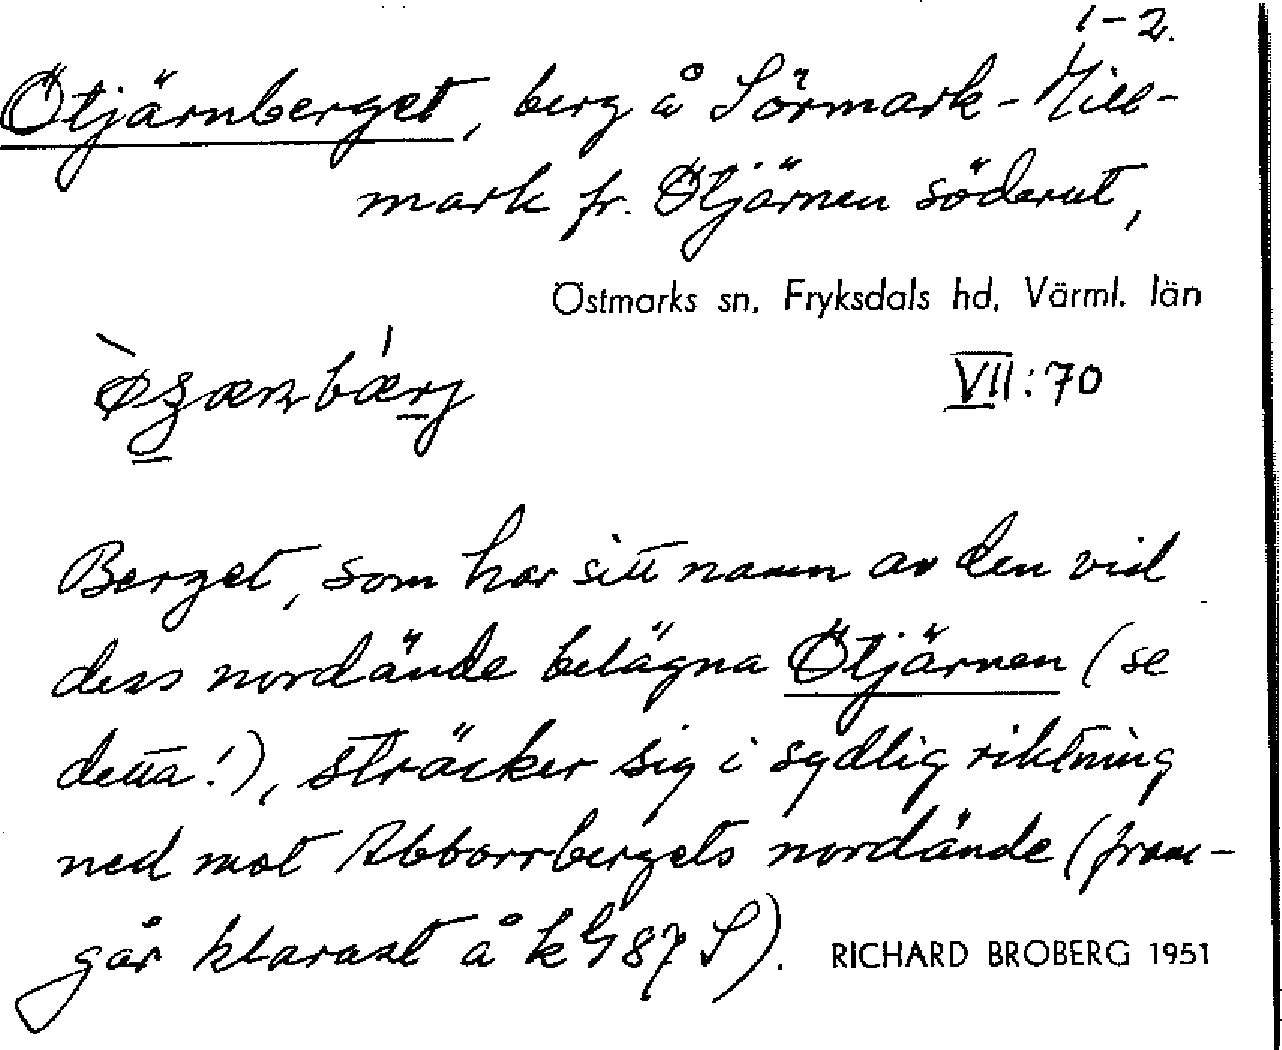 1–2.
Ötjärnberget, berg å Sörmark-Mill-
mark fr. Ötjärnen söderut,
Östmarks sn, Fryksdals hd, Värml. län
VII:70
Berget, som har sitt namn av den vid
dess nordände belägna Ötjärnen (se
detta!), sträcker sig i sydlig riktning
ned mot Abborrbergets nordände (fram-
går klarast å kbl 87 S). RICHARD BROBERG 1951